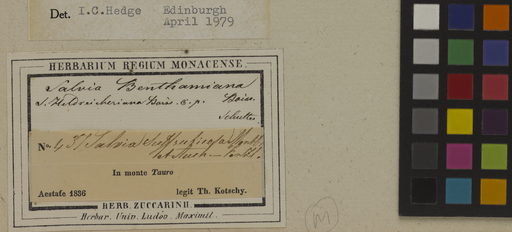 Det. I.C.Hedge Edinburgh
April 1979
HERBARIUM REGIUM MONACENSE.
Salvia Benthamiana
S. Heldreichiana Boiss. e. p. Boiss.
No. Salvia suffruticosa
In monte Tauro
Aestate 1836 legit Th. Kotschy.
HERB. ZUCCARINII.
Herbar. Univ. Ludov. Maximil.